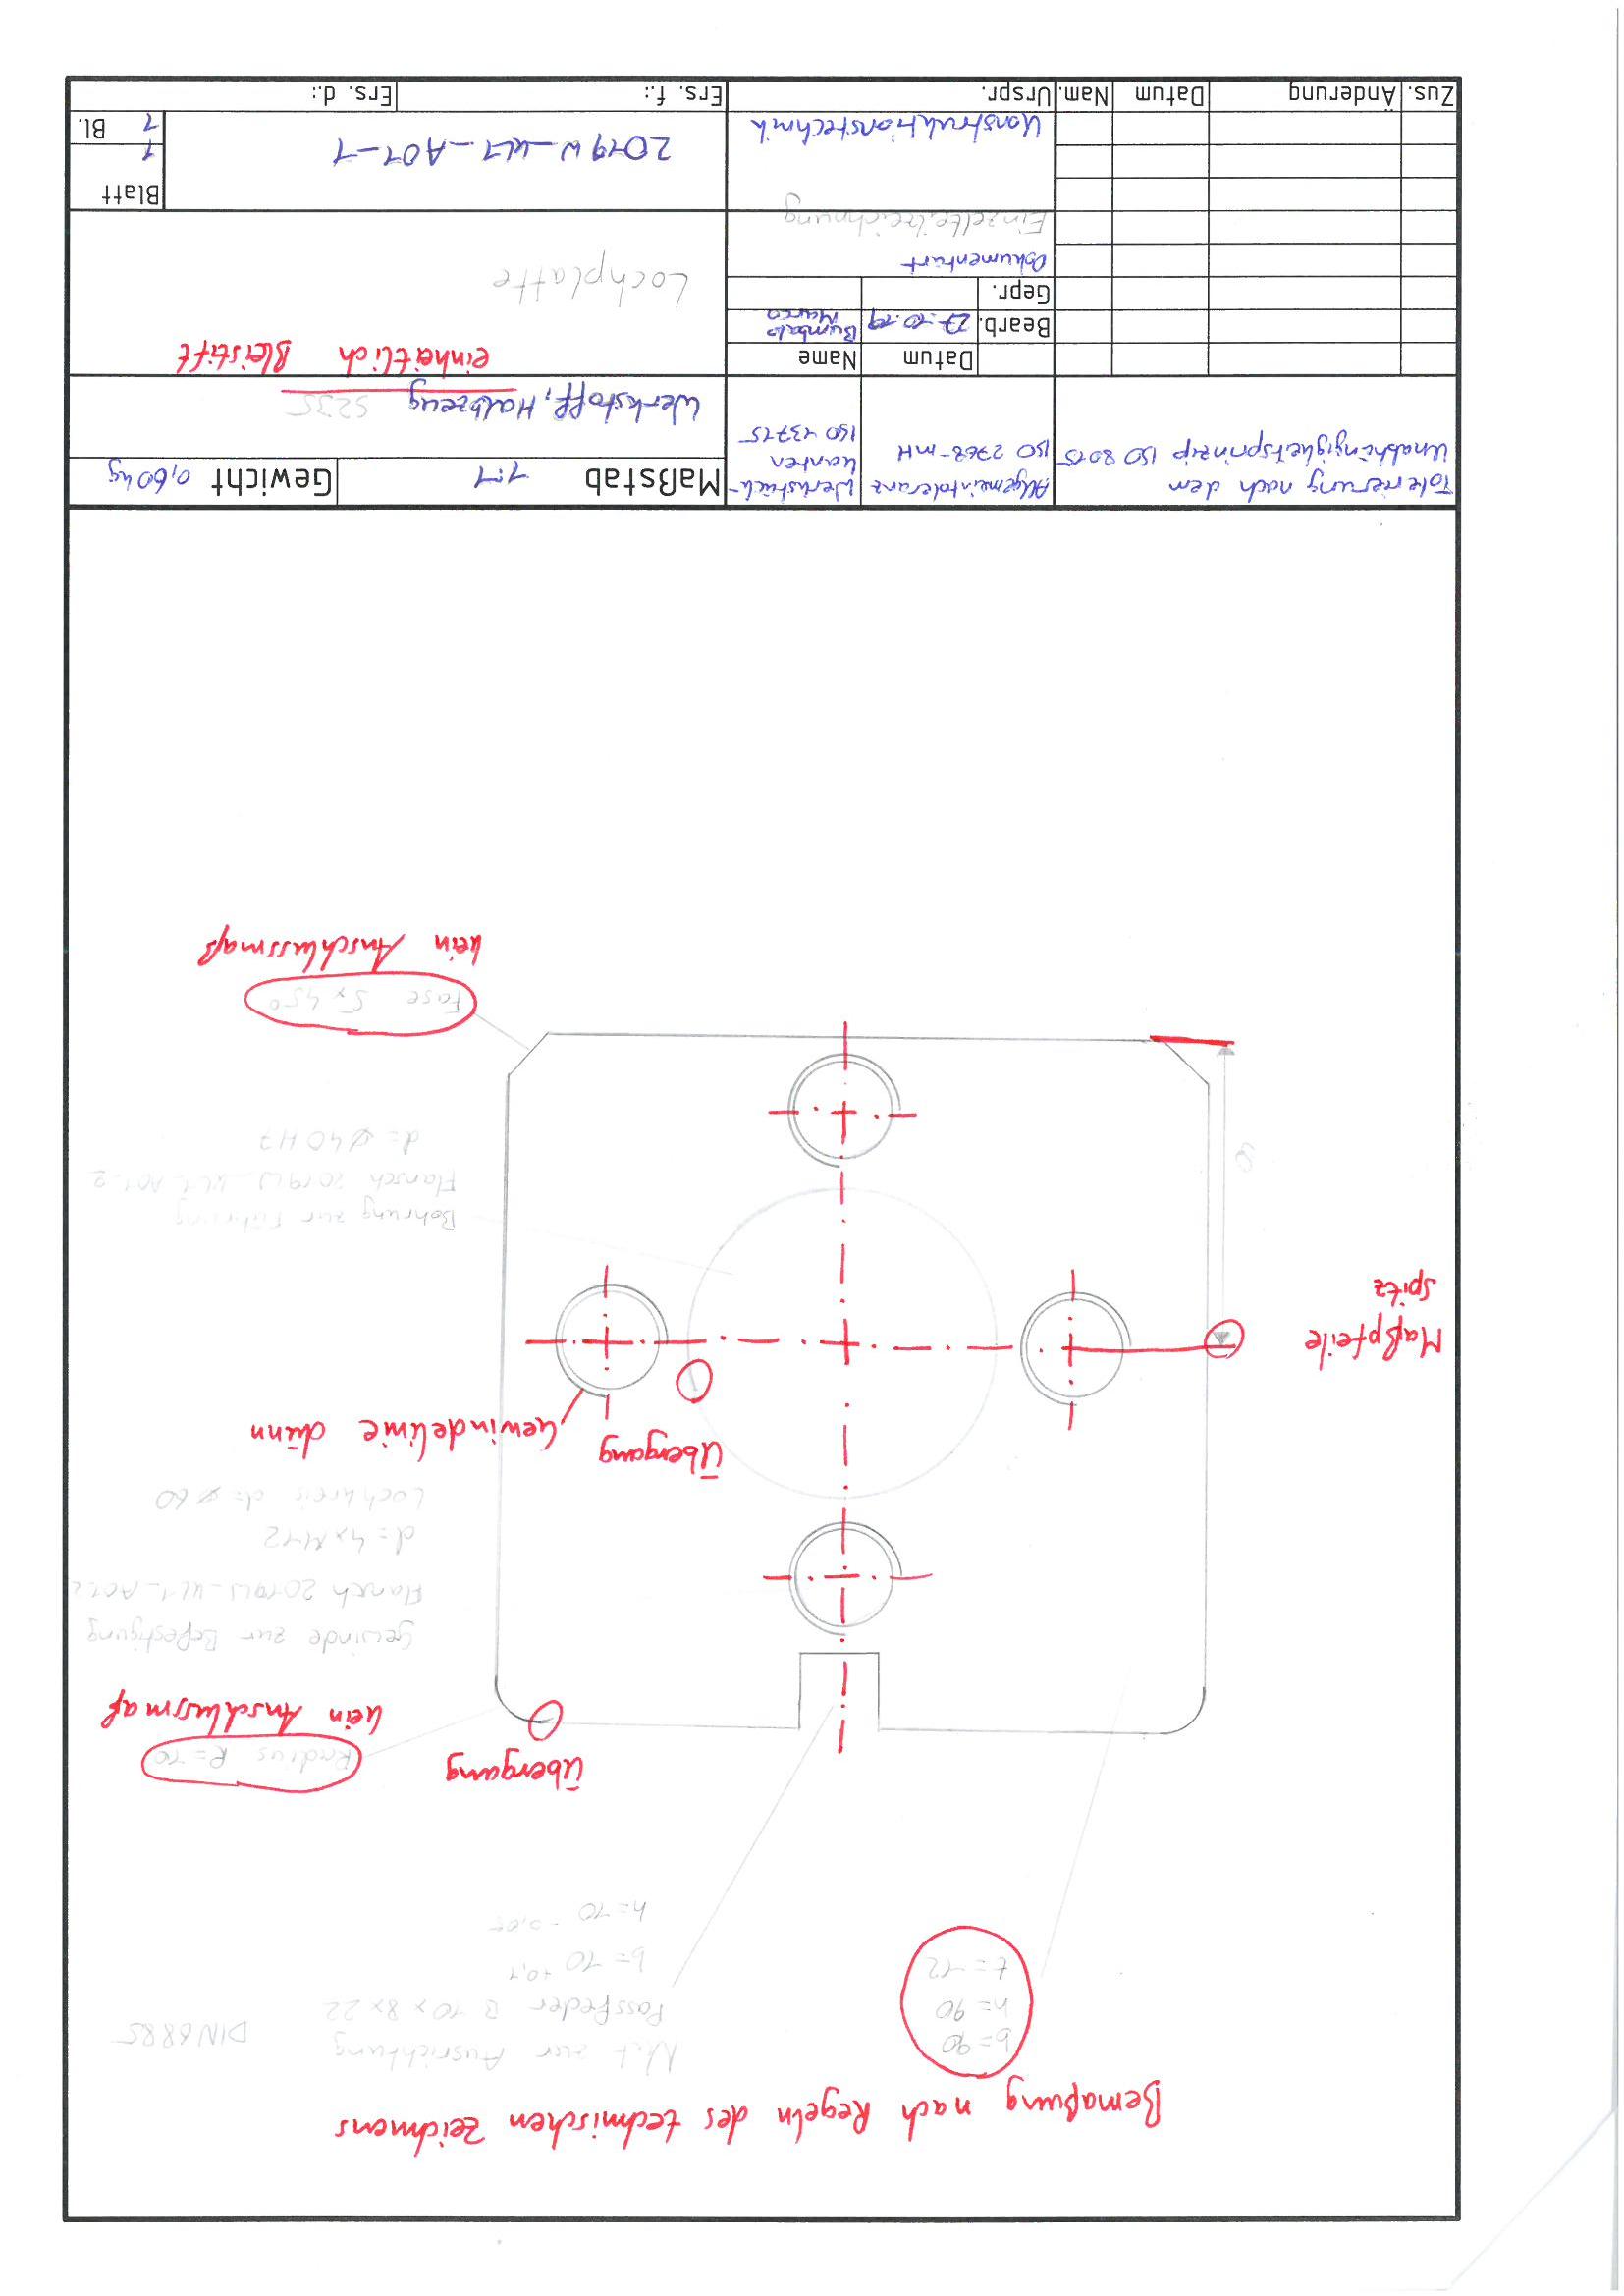 Bemaßung nach Regeln des technischen Zeichnens
b=90
h=90
t=12
Nut zur Ausrichtung
DIN 6885
Passfeder B 10x8x22
b=10 +0,1
h=10
Übergang
Radius R=10
kein Anschlussmaß
Gewinde zur Befestigung
Flansch 2019W-KL1-A01-2
d=4xM12
Lochkreis d=⌀60
Übergang
Gewindelinie dünn
Maßpfeile
spitz
Bohrung zur Führung
Flansch 2019W-KL1-A01-2
d=⌀40H7
Fase 5x45°
kein Anschlussmaß
Tolerierung nach dem
Unabhängigkeitsprinzip ISO 8015
Allgemeintoleranz
ISO 2768-mH
Werkstück-
kanten
ISO 13715
Maßstab 1:1
Gewicht 0,60kg
Werkstoff, Halbzeug S235
einheitlich Bleistift
Datum
Name
Bearb. 27.10.19 Bumbalo
Marco
Gepr.
Dokumentart
Einzelteilzeichnung
Lochplatte
Konstruktionstechnik
2019W-KL1-A01-1
Blatt
1
1 Bl.
Zus. Änderung Datum Nam. Urspr. Ers. f.: Ers. d.: